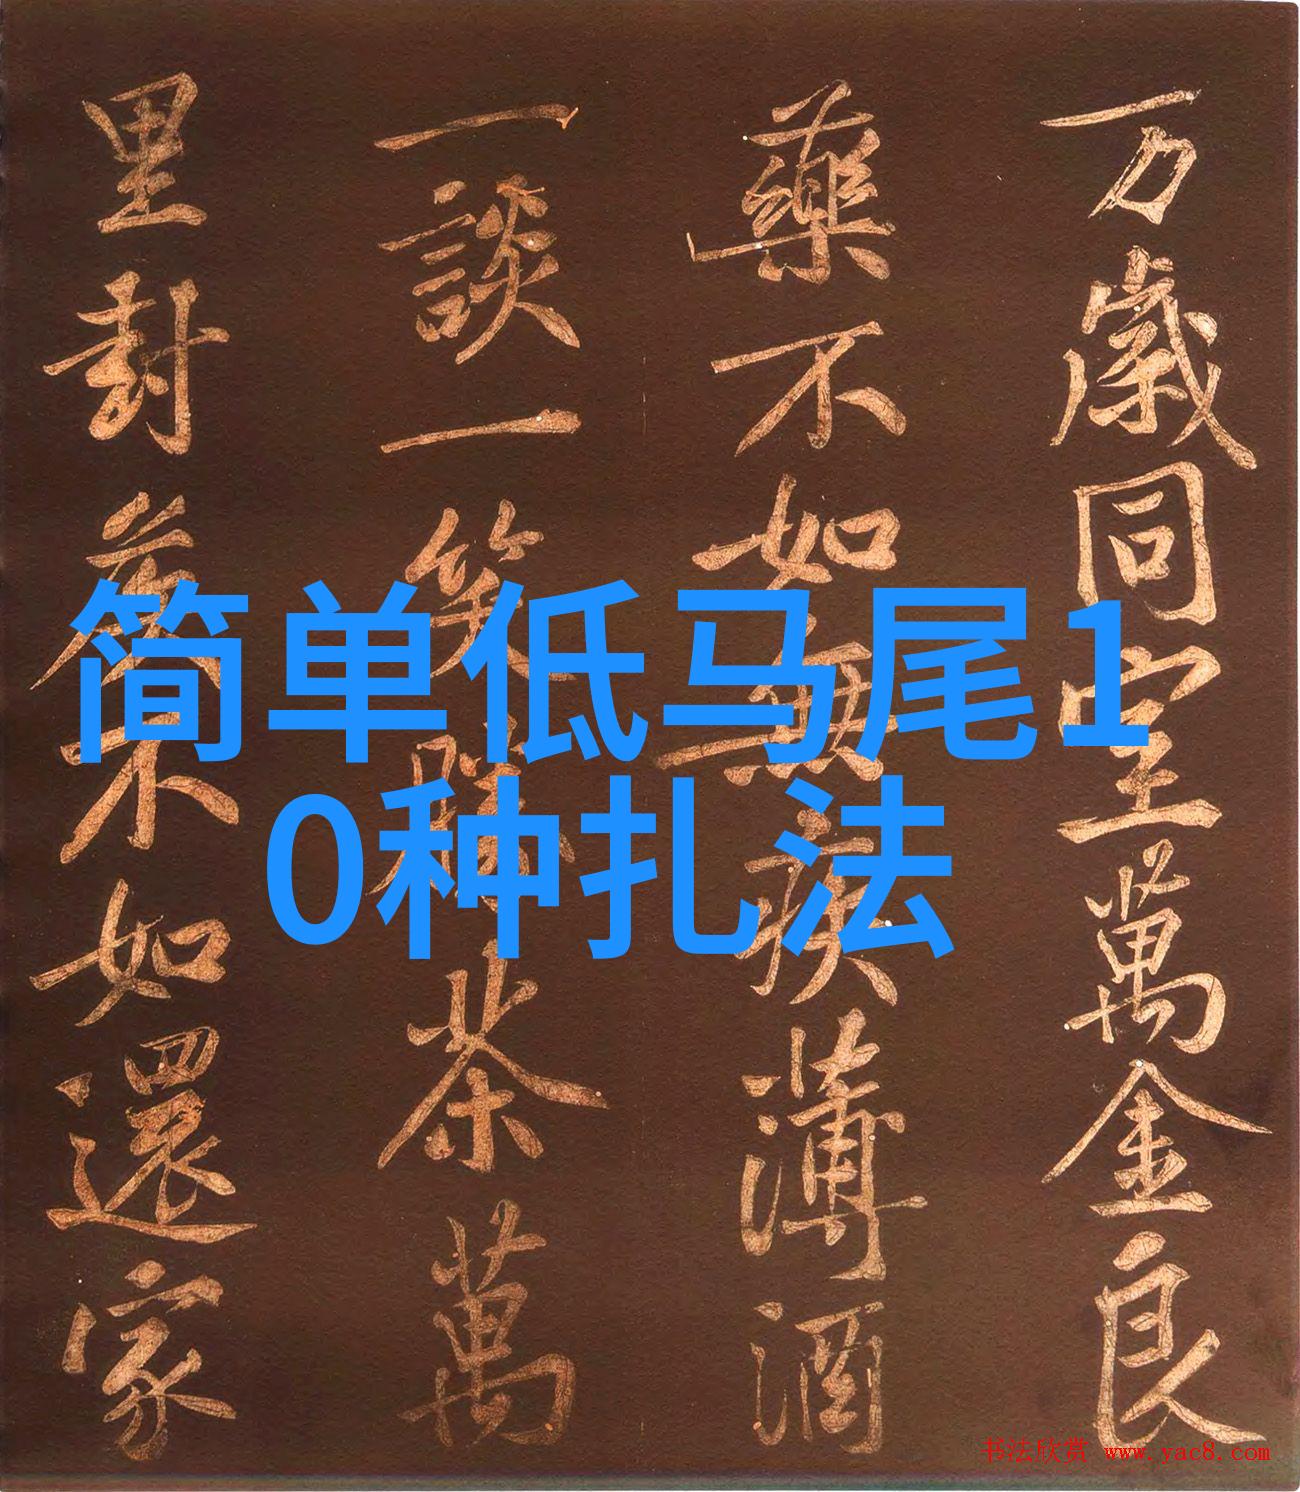 万歲同室萬金良
藥不如無疾薄酒
一談一笑勝茶萬
里封侯不如還家
简单低马尾1
0种扎法
书法欣赏 www.yac8.com